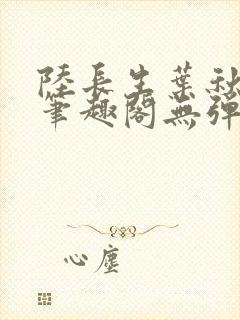 陸長生葉秋
筆趣閣無彈
心塵